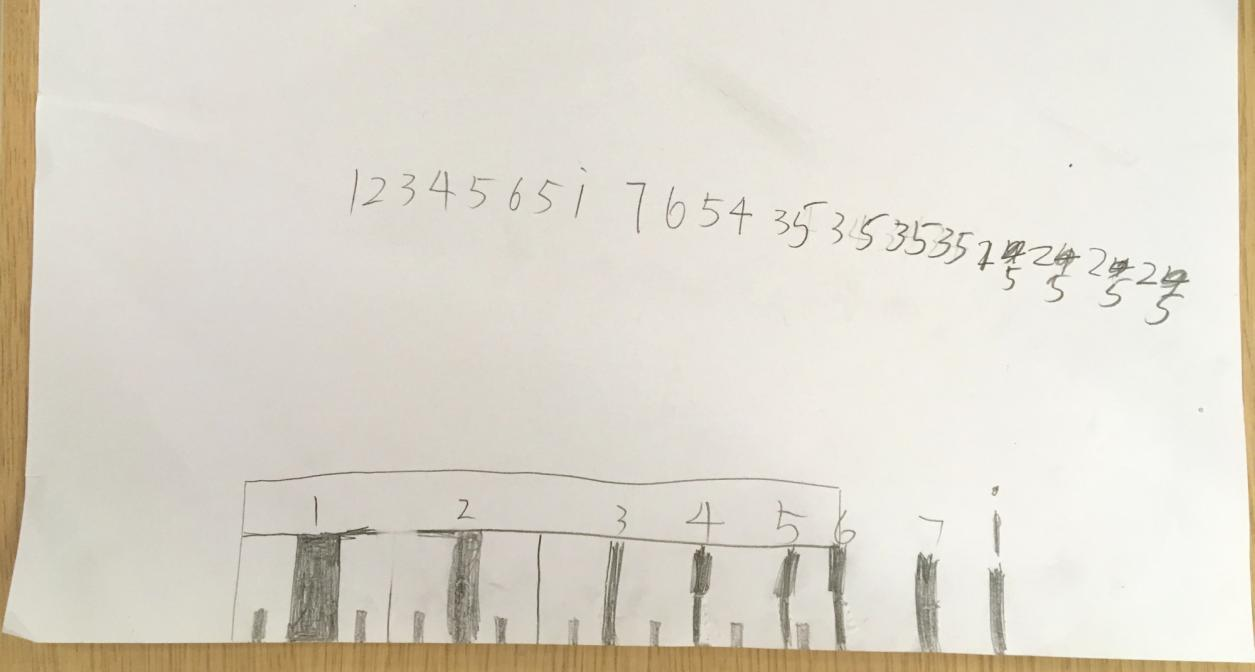 1 2 3 4 5 6 5 i 7 6 5 4 35 35 35 35 2 5 2 5 2 5 2 5
1 2 3 4 5 6 7 i